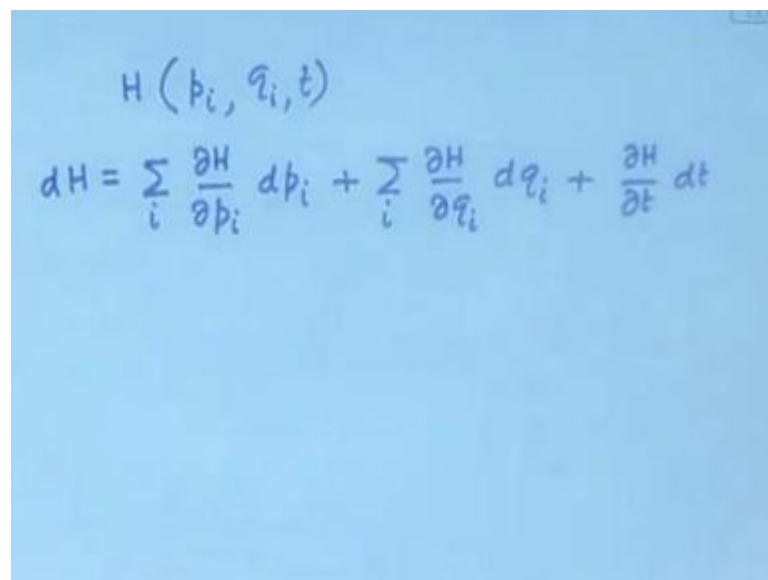 H (p_i, q_i, t)
dH = Σ_i ∂H/∂p_i dp_i + Σ_i ∂H/∂q_i dq_i + ∂H/∂t dt